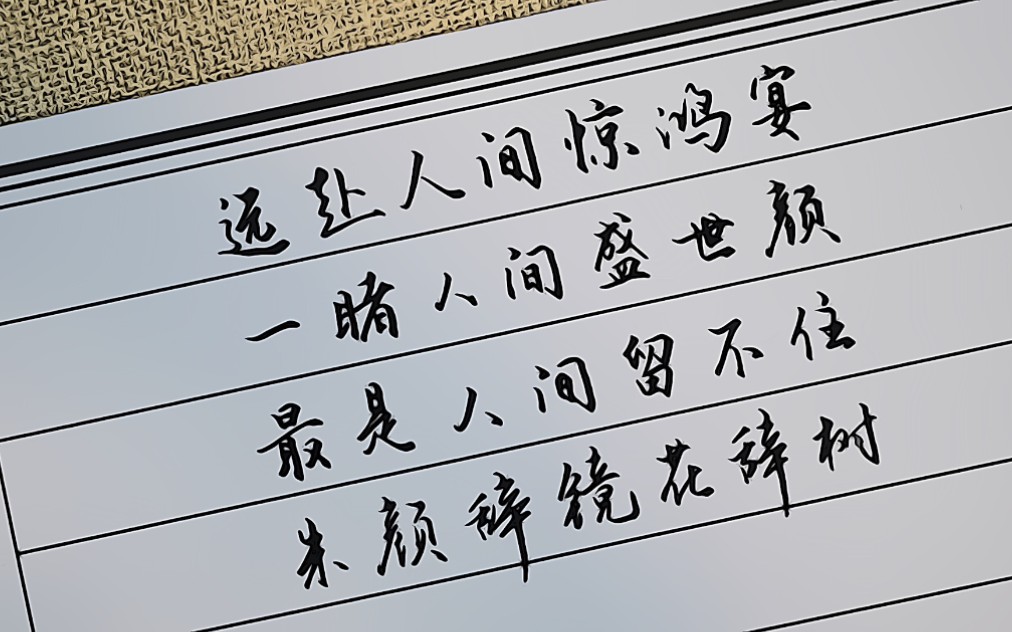 远赴人间惊鸿宴
一睹人间盛世颜
最是人间留不住
朱颜辞镜花辞树